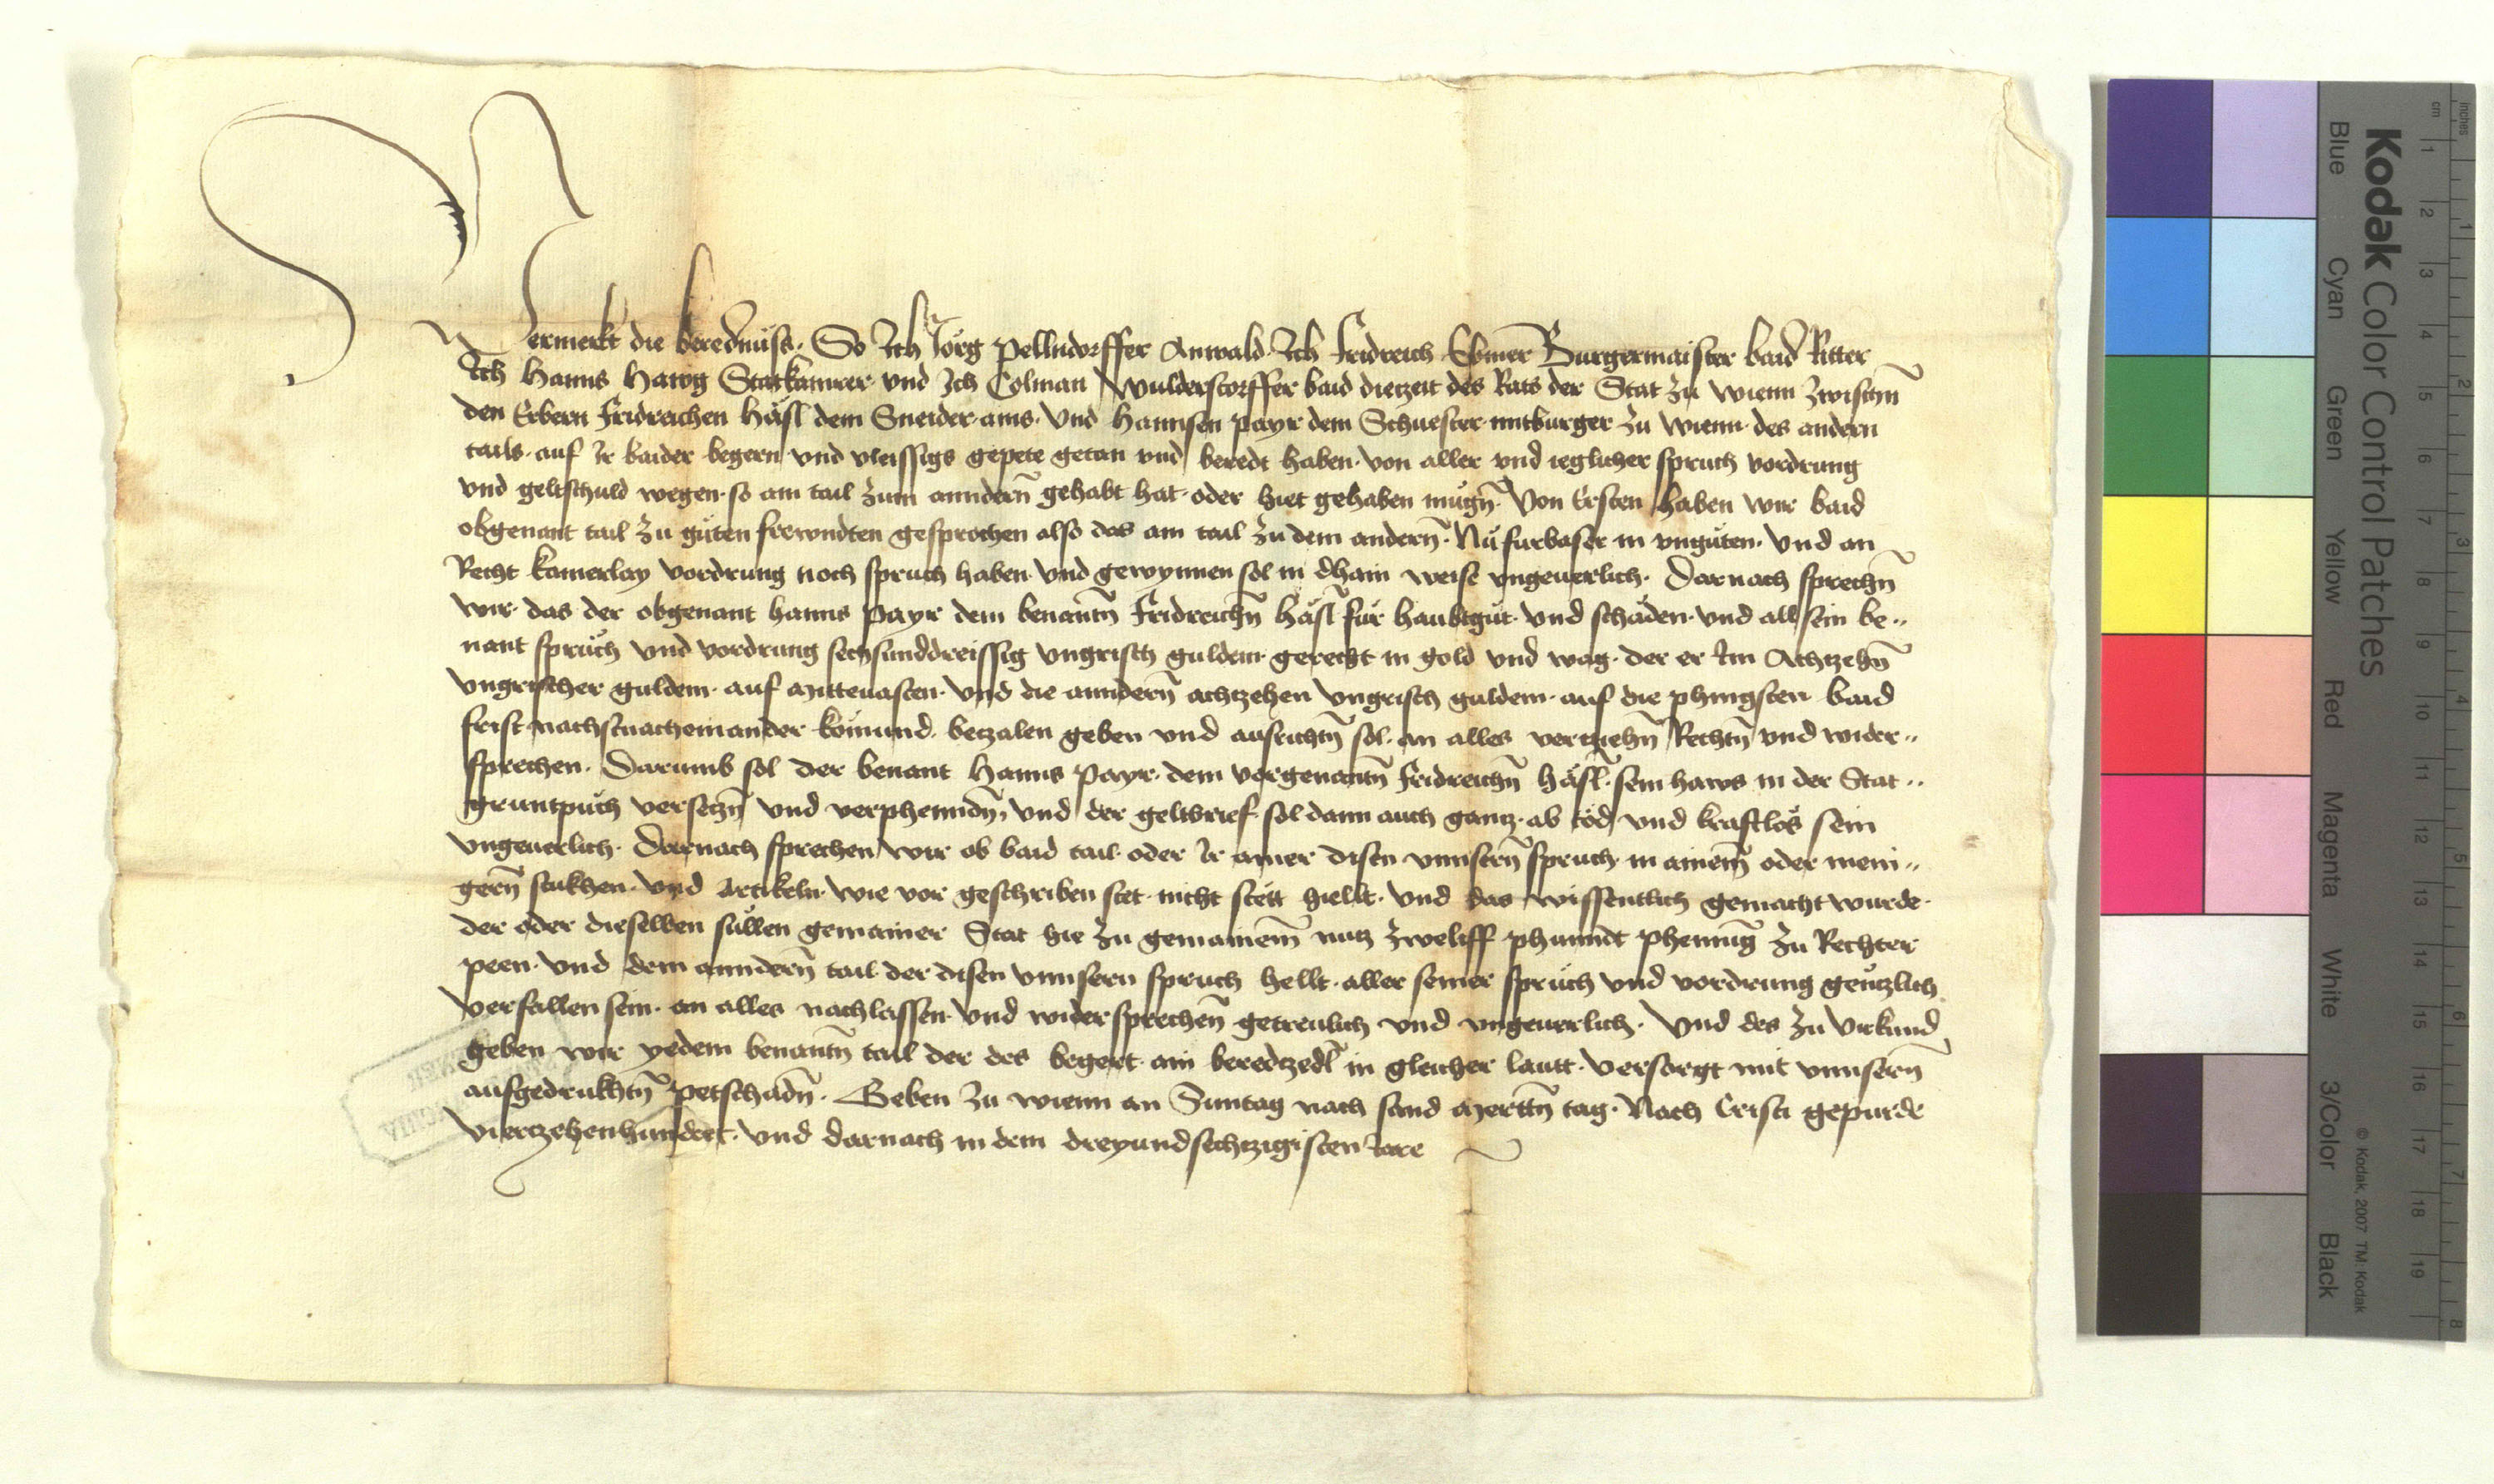 Vermerkt die berednüss. So Ich Jörg Pellndorffer Anwald. Ich Fridreich Ebmer Burgermaister baid Ritter
Ich Hanns Hawg Statkamrer und Ich Colman Wulderstorffer baid diezeit des Rats der Stat zu Wienn zwischn̄
den Erbern Fridreichen Häsl dem Sneider ains. Und Hannsen Payr dem Schuester mitburger zu Wienn des andern
tails. auf Ir baider begern und vleissigs gepete getan und beredt haben. von aller und ieglicher spruch vordrung
und geltschuld wegen. so ain tail zum anndern̄ gehabt hat. oder hiet gehaben mugn̄. Von Ersten haben wir baid
obgenant tail zu güten frewndten gesprochen also das ain tail zu dem andern̄. Nu furbaser in unguten. Und an
Recht kainerlay vordrung noch spruch haben. Und gewynnen sol in dhain weise ungeuerlich. Darnach sprechn̄
wir. das der obgenant hanns Payr dem benantn̄ Fridreichn̄ Häsl für haubtgut. Und schäden. und all sein be„
nant sprüch und vordrung sechsunddreissig ungrisch guldein. gerecht in gold und wag. der er Im Achtzehn̄
ungrischer guldein. auf Mittevasten. Und die anndern̄ achtzehen ungrisch guldein. auf die phingsten baid
frist nachstnacheinander kömund. betzalen geben und ausrichtn̄ sol. an alles vertziehn̄ Rechtn̄ und wider„
sprechen. Darumb sol der benant Hanns Payr. dem vorgenantn̄ Fridreichn̄ Häsl. sein haws in der Stat„
gruntpuch versetzn̄ und verphenndn̄, und der geltbrief sol dann auch gantz. ab töd und kraftlos sein
ungeuerlich. Darnach sprechen wir ob baid tail. oder Ir ainer disen unnsern̄ spruch. in ainem̄ oder meni„
gern̄ stukhen. Und Artikeln. wie vor geschriben stet. nicht stett hiellt. und das wissentlich gemacht wurde.
der oder dieselben süllen gemainer Stat hie zu gemainem̄ nutz zweliff phunndt phennig zu Rechter
peen. Und dem anndern̄ tail der disen unnsern spruch hellt. aller seiner spruch und vordrung gentzlich
verfallen sein. an alles nachlassen. Und widersprechen̄ getreulich und ungeuerlich. Und des zu Urkund
geben wir yedem benantn̄ tail der des begert. ain beredtzedl in gleicher lautt. versorgt mit unnsern̄
aufgedrukhtn̄ Petschadn̄. Geben zu Wienn an Suntag nach sand Merttn̄ tag. Nach Cristi gepurde
viertzehenhundert. und darnach in dem dreyundsechtzigisten Jare
Kodak Color Control Patches
Blue Cyan Green Yellow Red Magenta White 3/Color Black
© Kodak, 2007 TM: Kodak
inches 1 2 3 4 5 6 7 8
cm 1 2 3 4 5 6 7 8 9 10 11 12 13 14 15 16 17 18 19